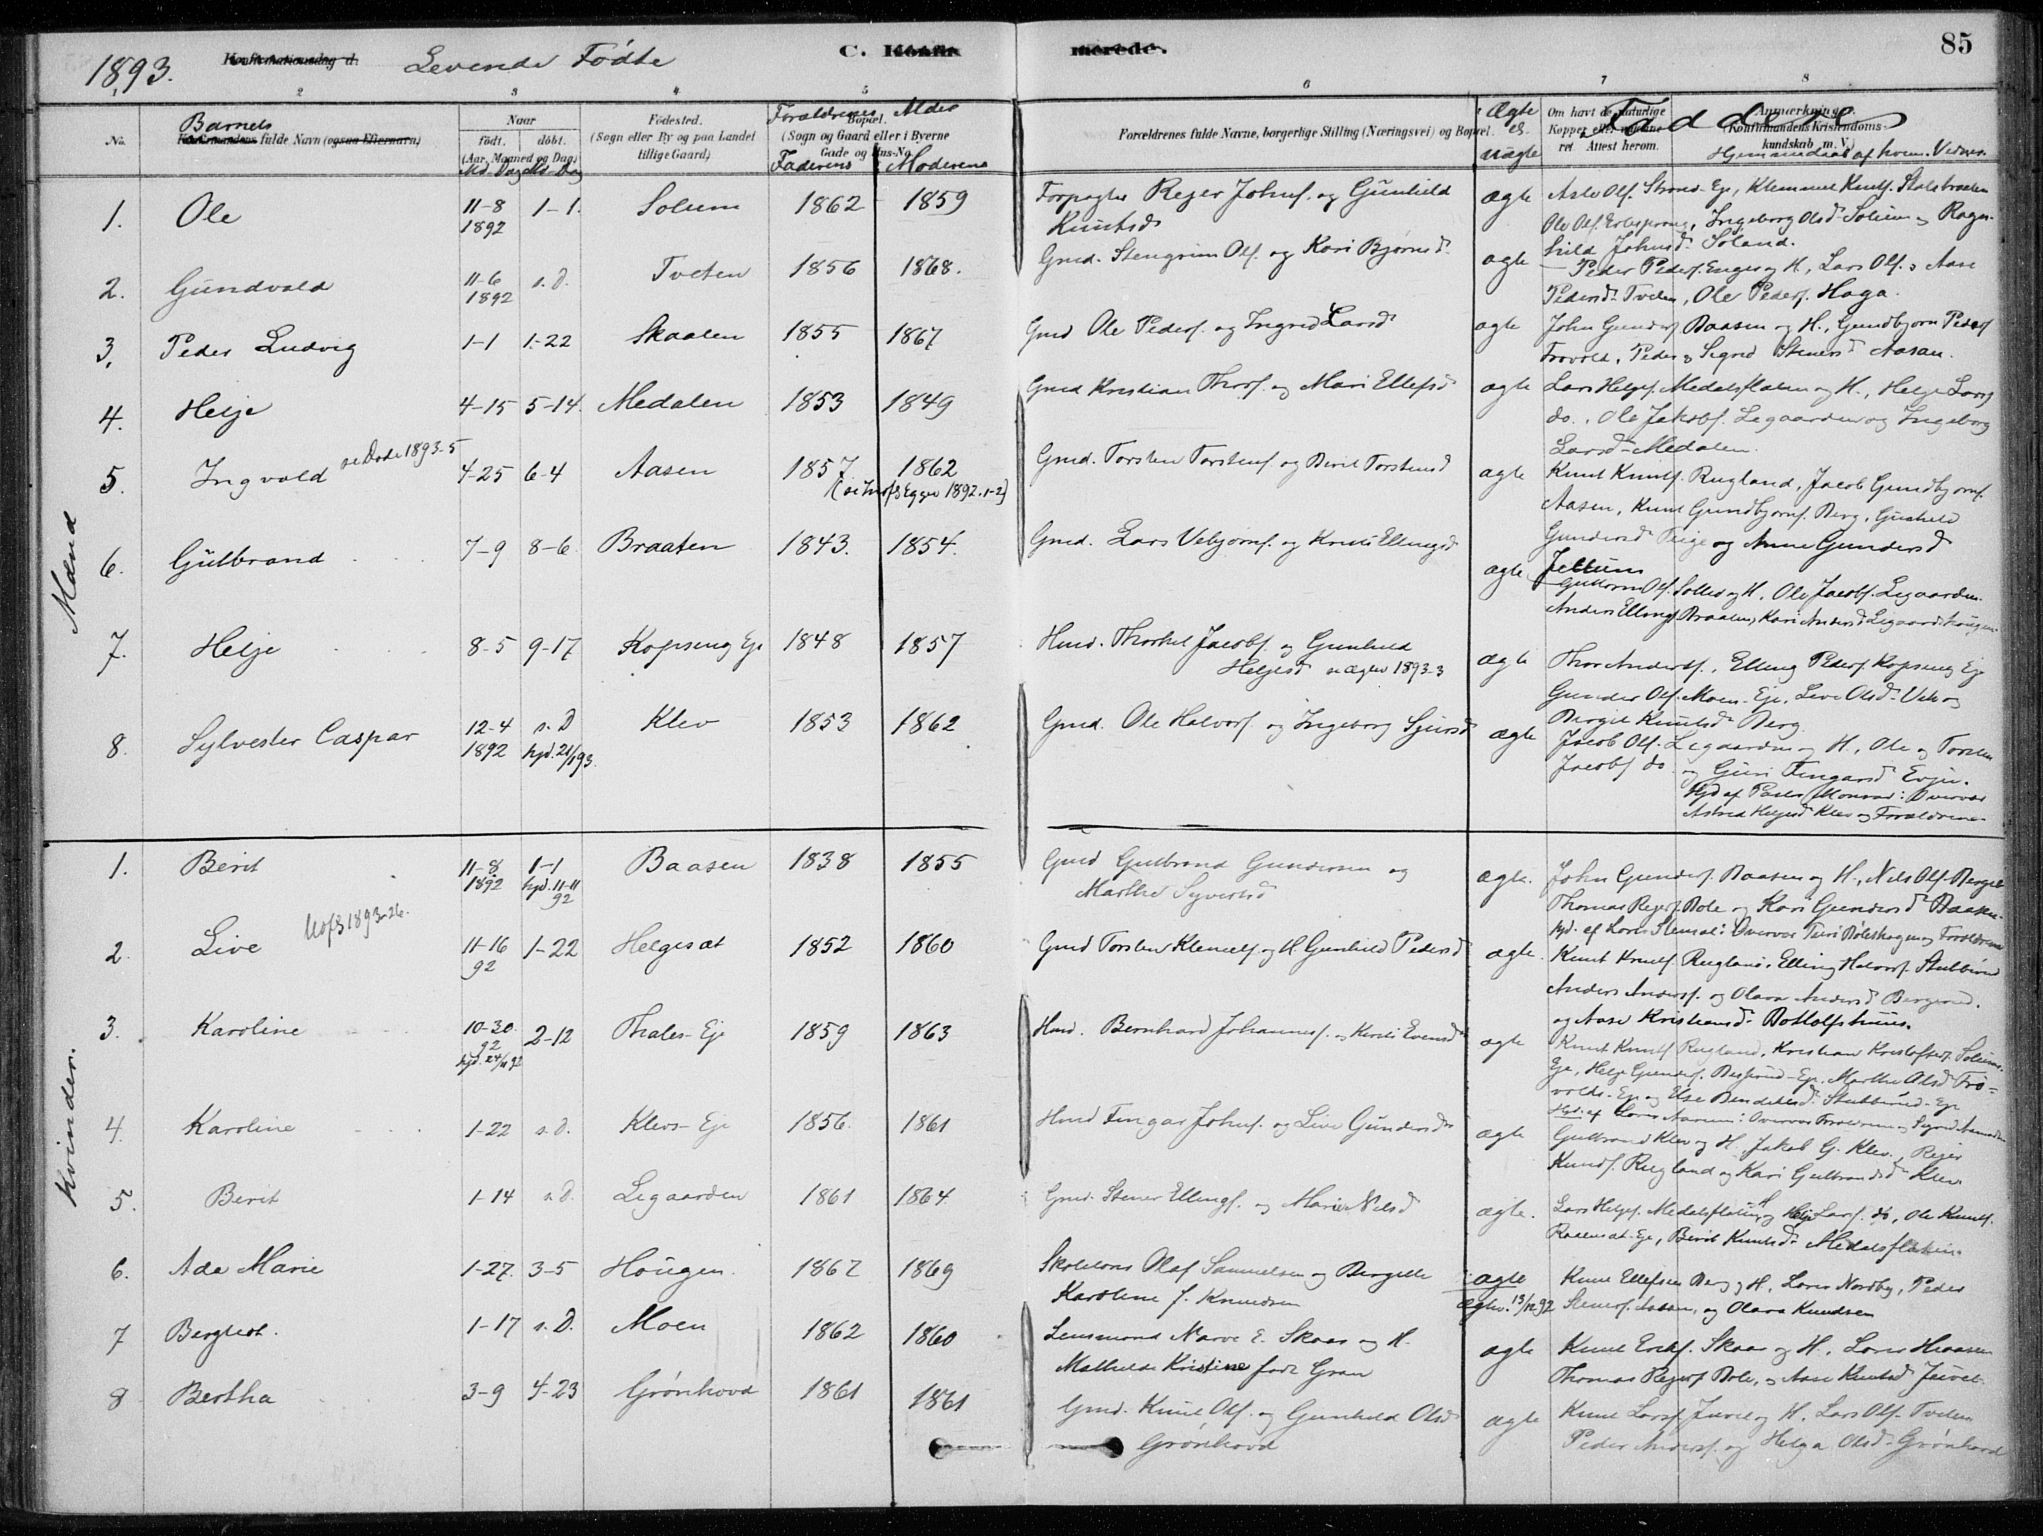 1893.
Konfirmationsdag d.
Levende Födte
C. Konfir
merede.
85
1
2
3
4
5
6
7
8
No.
Barnets
Konfirmandens fulde Navn (ogsaa Efternavn)
Naar
födt. döbt.
(Aar, Maaned og Dag)
Md-Dag Md-Dag
Födested.
(Sogn eller By og paa Landet
tillige Gaard)
Forældrenes Alder
Bopæl.
(Sogn og Gaard eller i Byerne
Gade og Hus-No.
Faderens Moderens
Forældrenes fulde Navne, borgerlige Stilling (Næringsvei) og Bopæl.
Ægte
el.
Uægte
Om havt de naturlige
Kopper eller vaccine
ret Attest herom.
Faddere
Anmærkninger
Konfirmandens Kristendoms-
kundskab m. V.
Hjemmedaab af hvem. Vidner.
Mænd
1. Ole 11-8 1892 1-1. Solem 1862 1859 Forpagter Rejer Johnf. og Gunhild Knutsd ægte Asle Olf. Strand-Eje, Klemmet Knutf. Stolsbraaten
Ole Olf. , Ingeborg Olsd Solem og Ragn-
hild Johnsd Soland.
2. Gundvald 11-6 1892 s.d. Tveten 1856 1868. Gmd. Stengrim Olf. og Kari Bjørnsd ægte Peder Pedersf. Enger og H, Lars Olf. & Aase
Pedersd Tveten, Ole Pedersf. Haga.
3. Peder Ludvig 1-1 1-22 Skaalen 1855 1867 Gmd Ole Pedersf. og Ingrid Larsd ægte John Gundersf Baasen og H., Gundbjørn Pedersf
Frovold, Peder & Sigrid Stenersd Aasan.
4. Helje 4-15 5-14 Medalen 1853 1849 Gmd Kristian Thorsf. og Mari Ellefsd ægte Lars Helgef. Medalsflaten og H., Helje Larsf
do., Ole Jakobf. Legaarden og Ingeborg
Larsd Medalen.
5. Ingvald se Døde 1893-5 4-25 6-4 Aasen 1857 1862 (se Indf. Egge 1892. 1-2) Gmd. Torsten Torstenf. og Berit Torstensd ægte Knut Knutf. Rugland, Jacob Gundbjørnf.
Aasen, Knut Gundbjørnf. Berg, Gunhild
Gundersd Teige og Anne Gundersd
Jellum
6. Gulbrand 7-9 8-6 Braaten 1843. 1854. Gmd. Lars Vebjørnf. og Kristi Ellingsd ægte Guttorm Olf. Sollid og H. Ole Jacobf. Legaarden.
Anders Ellingf Braaten, Kari Andersd Legaardshaugen.
7. Helje 8-5 9-17 Kopseng Eje 1848 1857 Hmd. Thorkel Jacobf. og Gunhild
Heljesd se Ægtev 1893-3 ægte Thor Andersf., Elling Pedersf Kopseng Eje
Gunder Olf. Moen-Eje, Live Olsd Vik og
Bergit Knutsd Berg
8. Sylvester Caspar 12-4 1892 s.D hjd. 21/1 93. Klev 1853 1862 Gmd. Ole Halvorf. og Ingeborg Sjursd ægte Jacob Olf. Legaarden og H, Ole og Torsten
Jacobf do og Guri Fingarsd Evju.
Hjd af Peder Monsen: Overvær
Astrid Heljesd Klev og Forældrene
Kvinder.
1. Berit 11-8. 1892 1-1 hjd. 11-11 92 Baasen 1838 1855 Gmd Gulbrand Gundersen og
Marthe Syversd ægte. John Gundersf. Baasen og H., Nils Olf. Berget
Thomas Rejersf. Bole og Kari Gundersd Baasen
hjd. af Lærer Stensat: Overvær Turi Bøleshagen og Forældrene
2. Live Udfl 1893-26. 11-16 92 1-22 Helgeset 1852 1860 Gmd Torsten Klemetf. og H Gunhild Pedersd ægte. Knut Knutf. Rugland, Elling Halvorf. Stubberud
Anders Andersf. og Olava Andersd Bergerud.
og Aase Kristiansd Bottolfshuus.
3. Karoline 10-30. 92 hjd. 24/11 92 2-12 Thales-Eje 1859 1863 Hmd. Bernhard Johannesf. & Kersti Evensd ægte Knut Knutf Rugland, Kristian Kristofersf. Solum-
Eje, Helge Gundersf. Besserud-Eje. Marthe Olsd Fro-
volds-Eje og Else Bendiksd Stubberud-Eje
Hjd. af Lærer Aarnes: Overvær Forældrene og Sigrid Aamodt
4. Karoline 1-22 s.d. Klevs-Eje 1856. 1861 Hmd Fingar Johnf. og Live Gundersd ægte Gulbrand Klev og H. Jakob G. Klev, Rejer
Knudf. Rugland og Kari Gulbrandsd Klev
5. Berit 1-14 s.d. Legaarden 1861 1864. Gmd. Stener Ellingf. og Marie Nilsd ægte. Lars Helgef. Medalsflaten og H, Helje Larsf. do, Ole Knutf.
Roensat-Eje, Berit Knutsd Medalsflaten.
6. Ada Marie 1-27. 3-5 Hougen. 1867 1869 Skolelærer Olaf Samuelsen og Bergitte
Karoline f. Knudsen ægte
Ægtev. 13/12 92 Knut Ellefsen Berg og H. Lærer Nordby, Peder
Stenersf. Aasan, og Olava Knudsen
7 Bergliot. 1-17 s.D. Moen 1862 1860 Lensmand Narve E. Skaar og H.
Mathilde Kristine født Gran ægte Knut Erikf. Skaar og H., Lærer Haasen
Thomas Rejersf Bole, & Aase Knutsd Juvet
8 Bertha 3-9 4-23 Grønhovd 1861 1861 Gmd. Knut Olf. og Gunhild Olsd
Grønhovd ægte Knut Larsf Juvel og H. Lars Olf. Tveten
Peder Andersf. og Helga Olsd Grønhovd